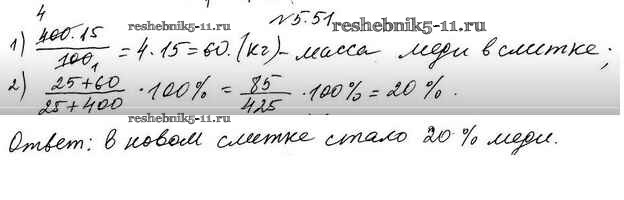 №5.51
1) 400·15/100 = 4·15=60.(кг)- масса меди в слитке;
2) 25+60/25+400 ·100% = 85/425 ·100%=20%.
Ответ: в новом слитке стало 20% меди.
4
1
reshebnik5-11.ru
reshebnik5-11.ru
reshebnik5-11.ru
reshebnik5-11.ru